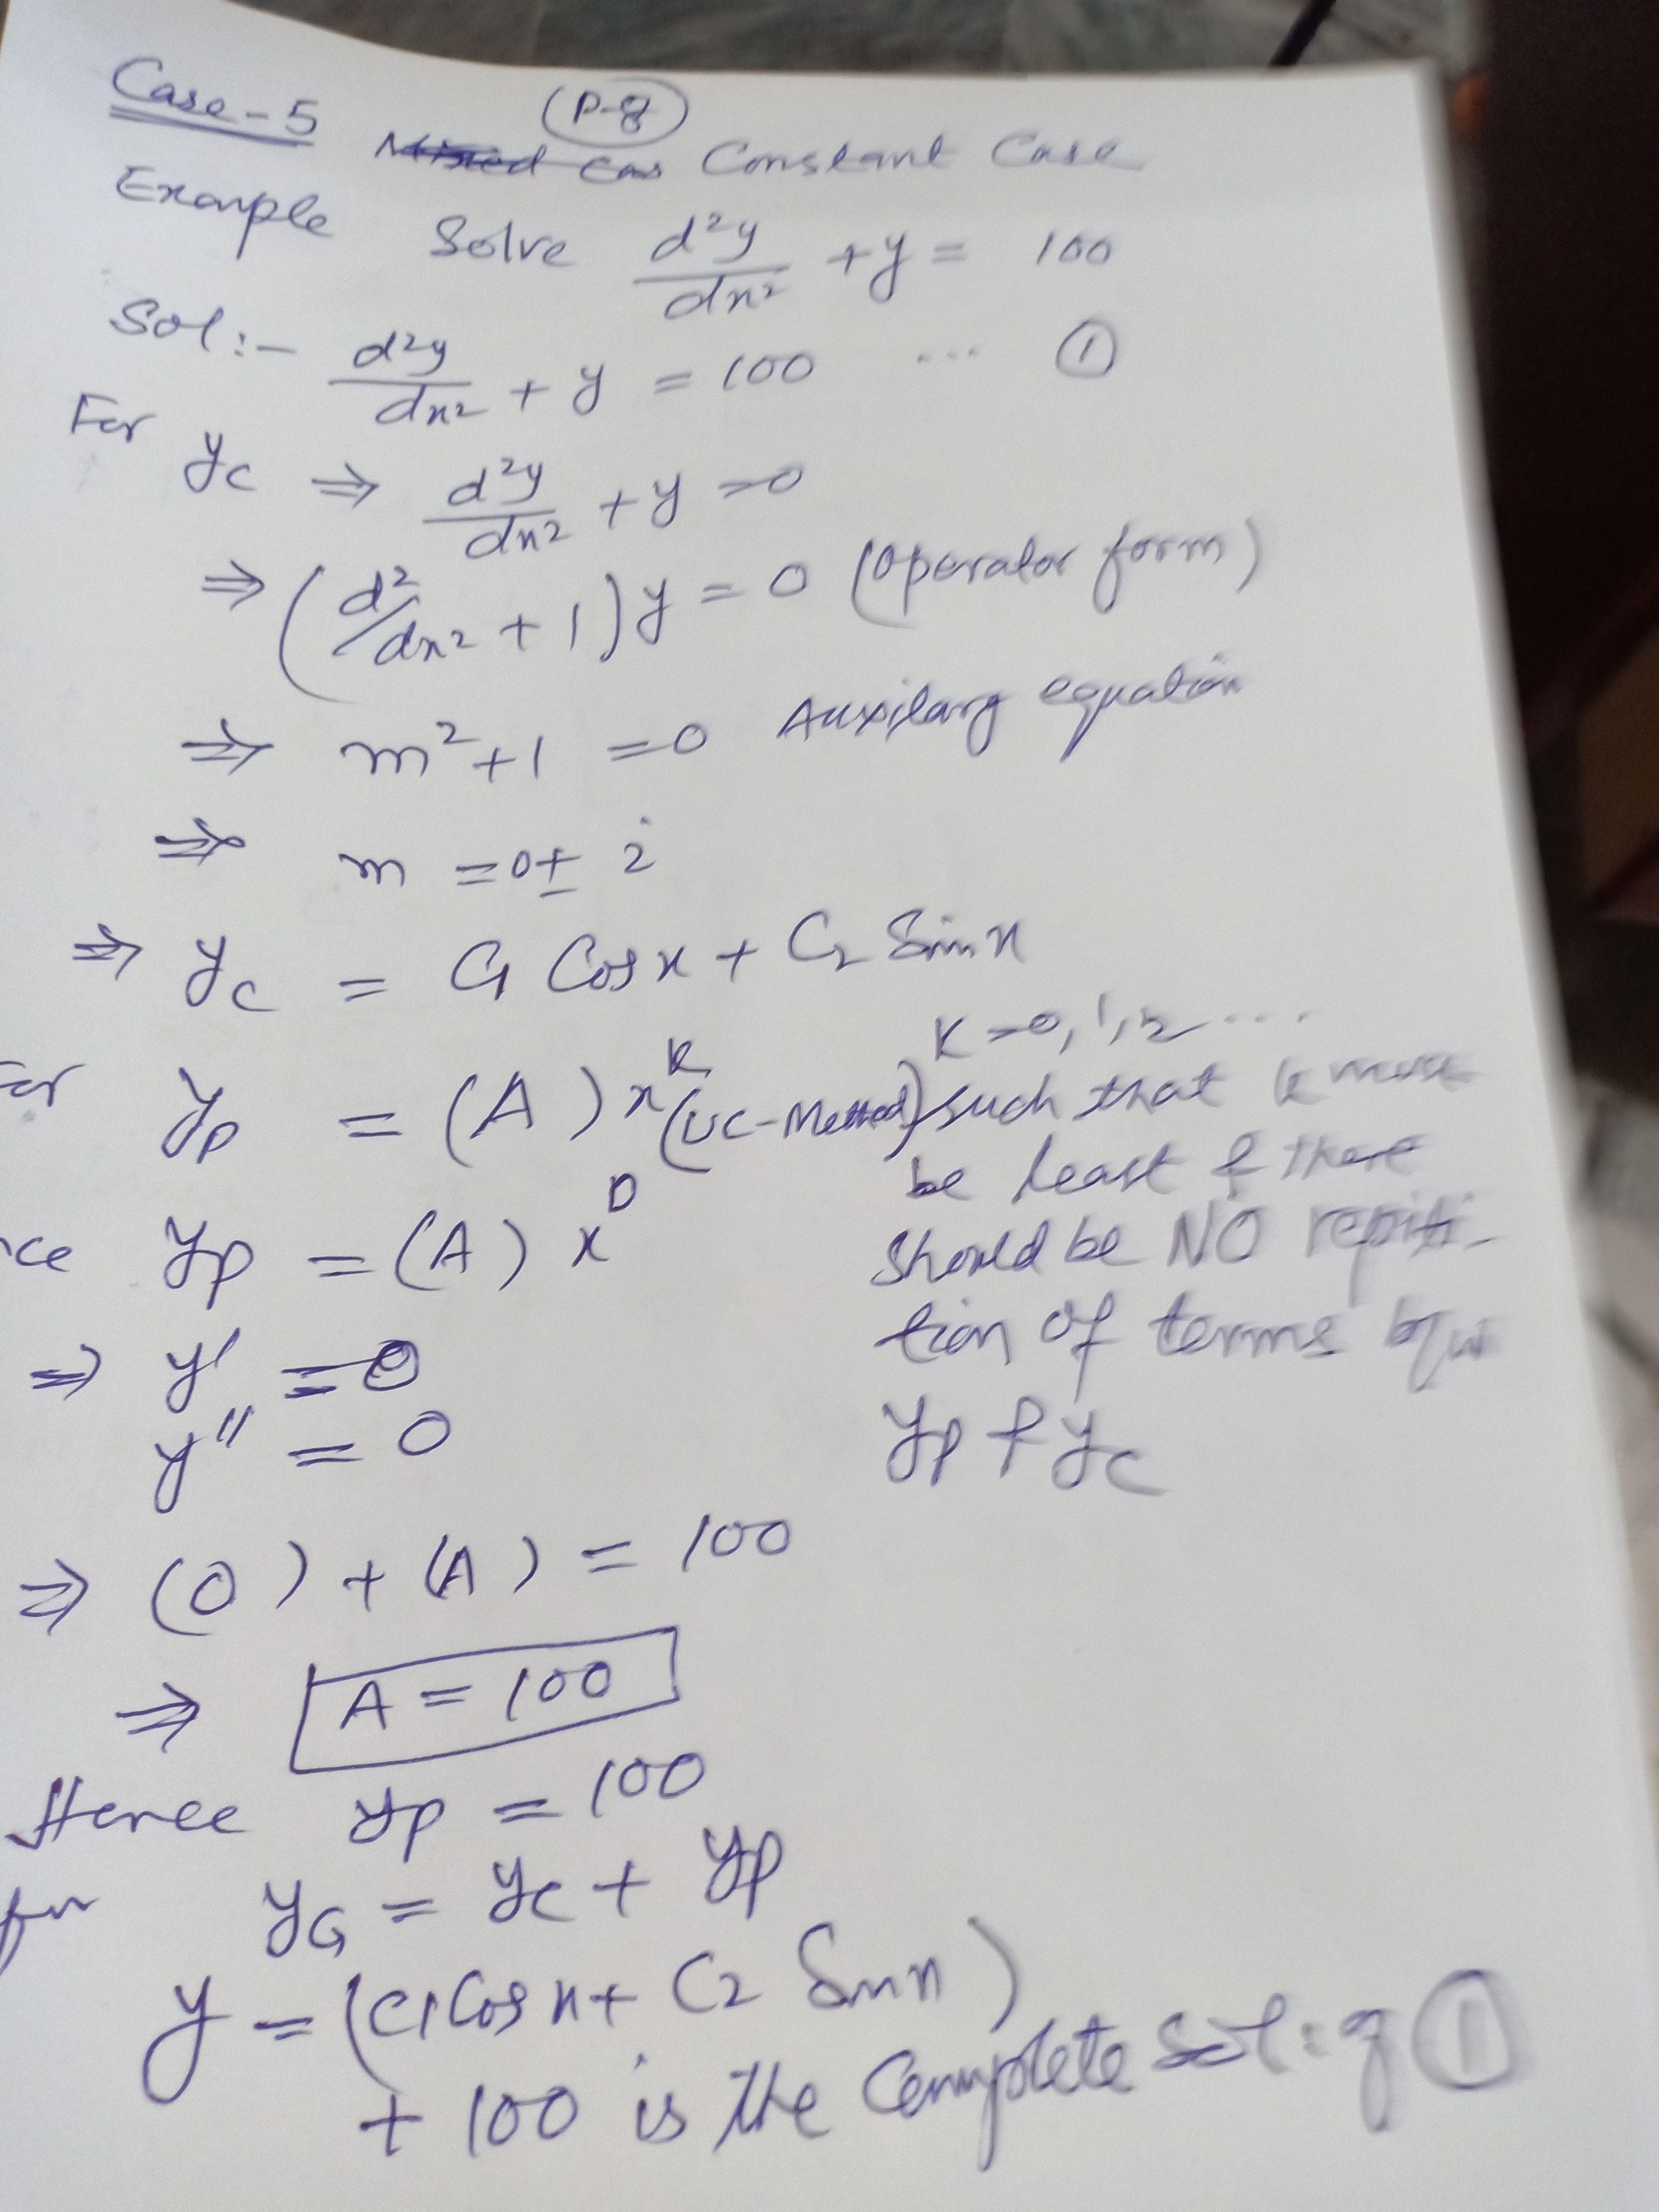 Case-5 (P-8)
Constant Case
Example Solve d²y/dx² + y = 100
Sol:- d²y/dx² + y = 100 ... ①
For yc ⇒ d²y/dx² + y = 0
⇒ (d²/dx² + 1)y = 0 (Operator form)
⇒ m² + 1 = 0 Auxilary equation
⇒ m = 0 ± i
⇒ yc = C1 Cosx + C2 Sinx
For yp = (A) x^k (UC-Method) K = 0, 1, 2 ... such that k must
be least & there
should be NO repiti-
tion of terms b/w
yp & yc
yp = (A) x^0
⇒ y' = 0
y'' = 0
⇒ (0) + (A) = 100
⇒ A = 100
Hence yp = 100
for yG = yc + yp
y = (C1 Cosx + C2 Sinx)
+ 100 is the Complete Sol: of ①